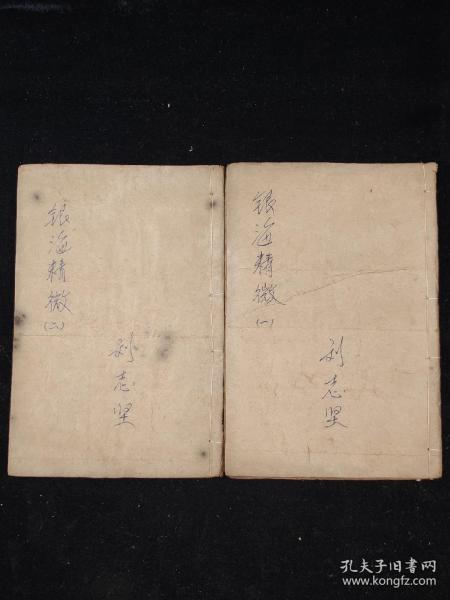 银海精微
(二)
刘志坚
银海精微
(一)
刘志坚
孔夫子旧书网
www.kongfz.com